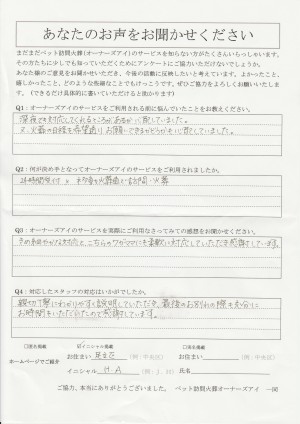 あなたのお声をお聞かせください
まだまだペット訪問火葬(オーナーズアイ)のサービスを知らない方がたくさんいらっしゃいます。
その方たちに少しでも知っていただくためにアンケートにご協力いただけないでしょうか。
あなた様のご意見をお聞かせいただき、今後の活動に反映したいと考えています。よかったこと、
嬉しかったこと、どのような些細なことでもけっこうです。ぜひご協力をよろしくお願いいたします。(できるだけ具体的に書いていただけると助かります)
Q1:オーナーズアイのサービスをご利用される前に悩んでいたことをお教えください。
深夜でも対応してくれるところがあるか心配していました。
又、火葬の日程を希望通りにお願いできるかどうかも心配していました。
Q2:何が決め手となってオーナーズアイのサービスをご利用されましたか。
24時間受付
Q3:オーナーズアイのサービスを実際にご利用なさってみての感想をお聞かせください。
きめ細やかな対応と、こちらのワガママにも柔軟に対応していただき感謝しています。
Q4:対応したスタッフの対応はいかがでしたか。
親切丁寧にわかりやすく説明していただき、最後のお別れの際も充分に
お時間もいただけたので感謝しています。
□匿名掲載 ☑イニシャル掲載 □実名掲載
ホームページでご紹介
お住まい (例:中央区) お住まい (例:中央区)
イニシャル H.A 氏名
ご協力、本当にありがとうございました。 ペット訪問火葬オーナーズアイ